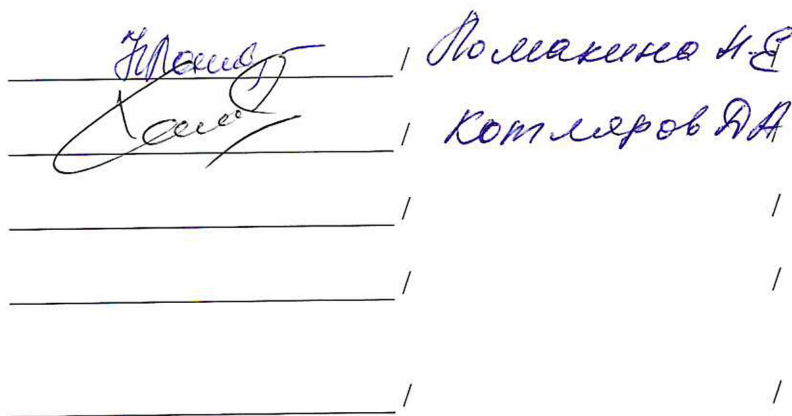 / Ломакина Н.Е
/ Котляров ДА
/ /
/ /
/ /